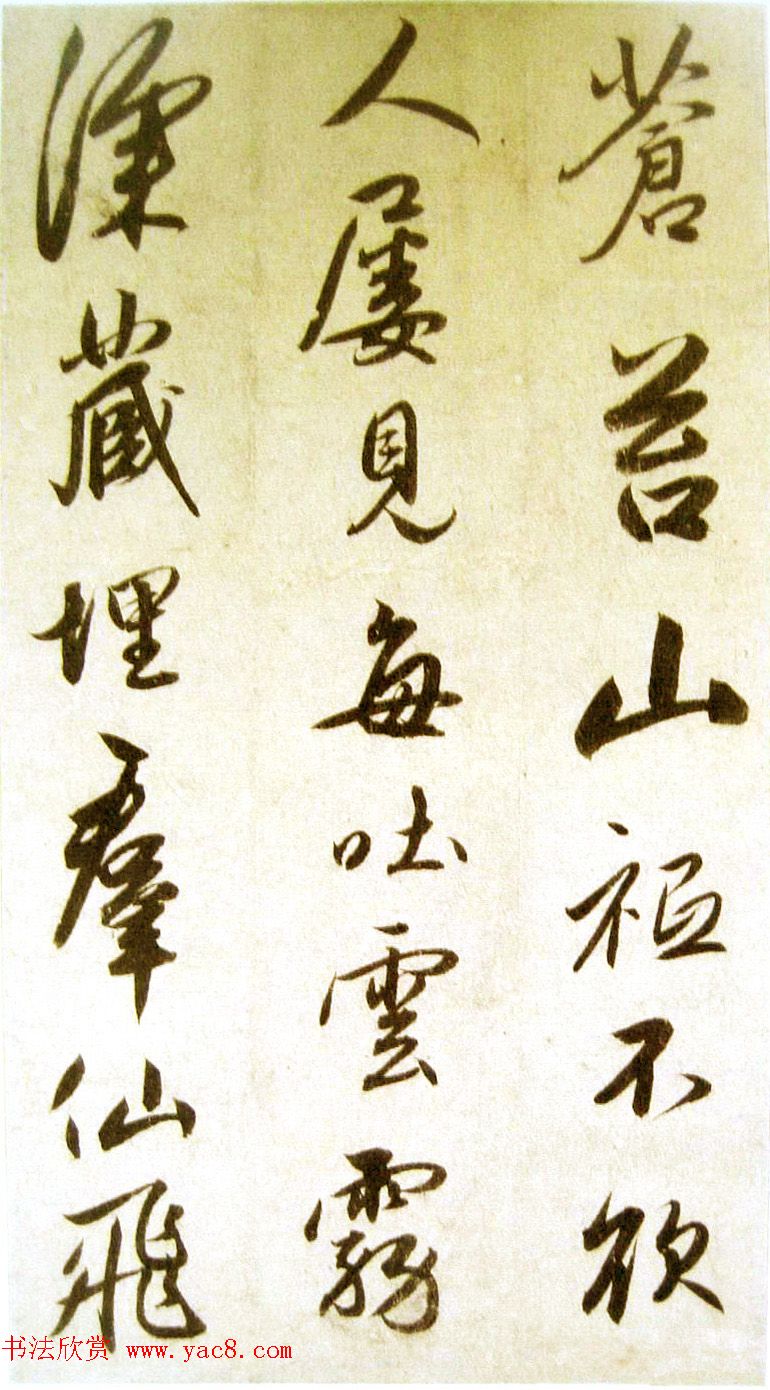 蒼苔山祗不欲
人屢見每吐雲霧
深藏埋羣仙飛
书法欣赏 www.yac8.com